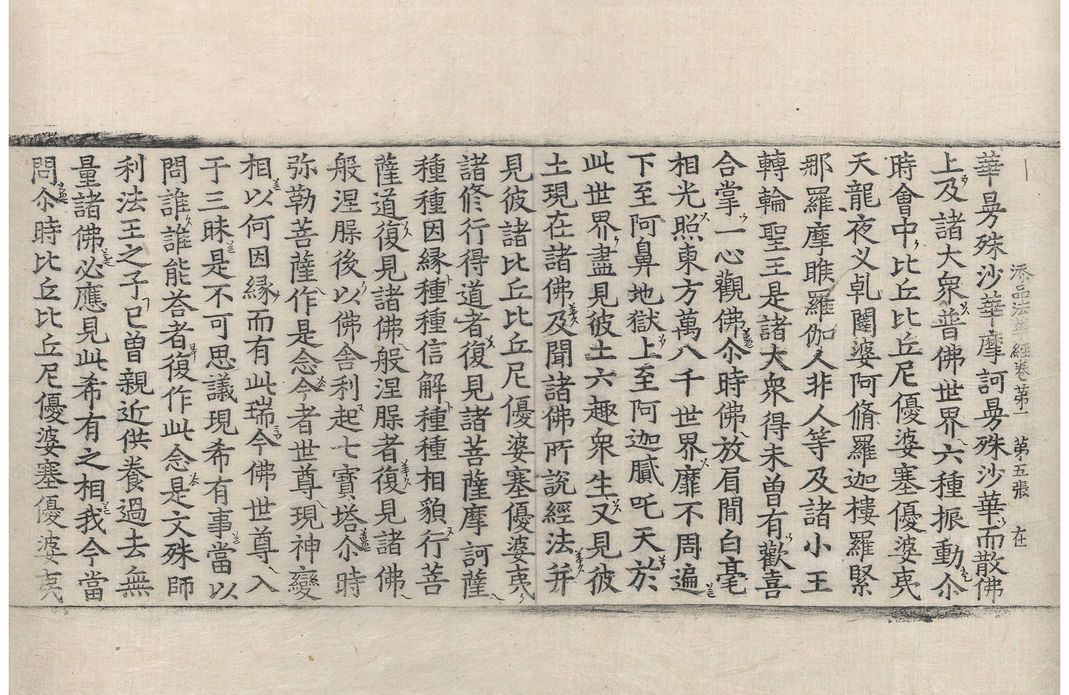 添品法華經卷第一　第五張　在
華曼殊沙華摩訶曼殊沙華而散佛
上及諸大衆普佛世界六種振動尒
時會中比丘比丘尼優婆塞優婆夷
天龍夜叉乹闥婆阿脩羅迦樓羅緊
那羅摩睺羅伽人非人等及諸小王
轉輪聖王是諸大衆得未曽有歡喜
合掌一心觀佛尒時佛放眉間白毫
相光照東方萬八千世界靡不周遍
下至阿鼻地獄上至阿迦膩吒天於
此世界盡見彼土六趣衆生又見彼
土現在諸佛及聞諸佛所說經法并
見彼諸比丘比丘尼優婆塞優婆夷
諸修行得道者復見諸菩薩摩訶薩
種種因縁種種信解種種相貌行菩
薩道復見諸佛般涅槃者復見諸佛
般涅槃後以佛舎利起七寶塔尒時
弥勒菩薩作是念今者世尊現神變
相以何因縁而有此瑞今佛世尊入
于三昧是不可思議現希有事當以
問誰誰能荅者復作此念是文殊師
利法王之子已曽親近供養過去無
量諸佛必應見此希有之相我今當
問尒時比丘比丘尼優婆塞優婆夷